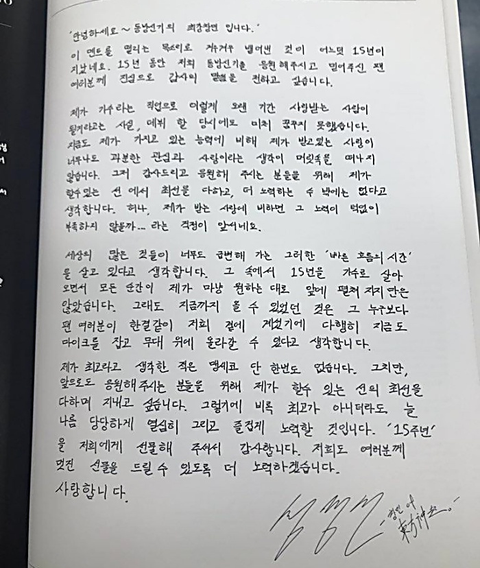 '안녕하세요~ 동방신기의 최강창민 입니다.'
이 멘트를 떨리는 목소리로 처음 뱉어낸 것이 어느덧 15년이
지났네요. 15년 동안 저희 동방신기를 응원해주시고 믿어주신 팬
여러분께 진심으로 감사의 말씀을 전하고 싶습니다.
제가 가수라는 직업으로 이렇게 오랜 기간 사랑받는 사람이
될거라고는 사실, 데뷔 할 당시에도 미처 꿈꾸지 못했습니다.
지금도 제가 가지고 있는 능력에 비해 제가 받고있는 사랑이
너무나도 과분한 관심과 사랑이라는 생각이 머릿속을 떠나지
않습니다. 그저 감사드리고 응원해 주시는 분들을 위해 제가
할수있는 선에서 최선을 다하고, 더 노력하는 수 밖에는 없다고
생각합니다. 허나, 제가 받는 사랑에 비하면 그 노력이 턱없이
부족하지 않을까... 라는 걱정이 앞서네요.
세상의 많은 것들이 너무도 급변해 가는 그러한 '빠른 흐름의 시간'
을 살고 있다고 생각합니다. 그 속에서 15년을 가수로 살아
오면서 모든 순간이 제가 마냥 원하는 대로 앞에 펼쳐 지지만은
않았습니다. 그래도 지금까지 올 수 있었던 것은 그 누구보다
팬 여러분이 한결같이 저희 곁에 계셨기에 다행히 지금도
마이크를 잡고 무대 위에 올라갈 수 있다고 생각합니다.
제가 최고라고 생각한 적은 맹세코 단 한번도 없습니다. 그치만,
앞으로도 응원해주시는 분들을 위해 제가 할수 있는 선의 최선을
다하며 지내고 싶습니다. 그렇기에 비록 최고가 아니더라도 늘
나름 당당하게 열심히 그리고 즐겁게 노력할 것입니다. '15주년'
을 저희에게 선물해 주셔서 감사합니다. 저희도 여러분께
멋진 선물을 드릴 수 있도록 더 노력하겠습니다.
사랑합니다.
심창민
東方神起